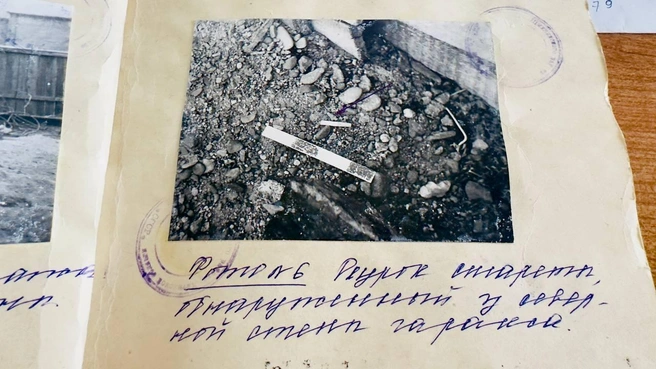 79
Фото № 6 Окурок сигареты,
обнаруженный у север-
ной стены гаражей.